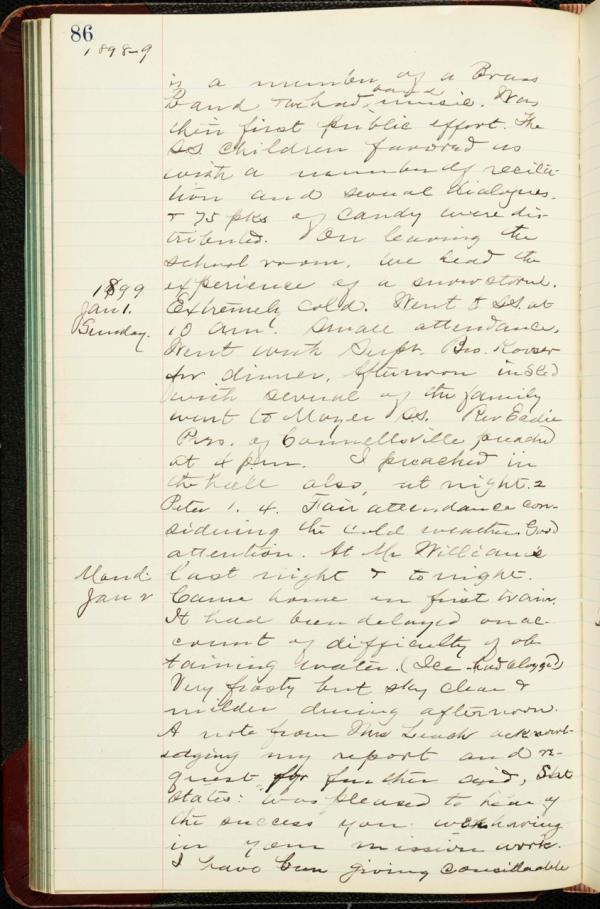 86
1898-9
is a member of a Brass
Band we had band music. Was
their first public effort. The
SS children favored us
with a number of recita-
tion and several dialogues.
& 75 pks of candy were dis-
tributed. On leaving the
school room, we had the
experience of a snow storm.
1899
Jan 1.
Sunday.
Extremely cold. Went to SS. at
10 am. Small attendance.
Went with Supt. Bro.
for dinner. Afternoon in Sled
with several of the family
went to Moyer SS. Rev Eadie
Pres. of Connellsville preached
at 4 pm. I preached in
the hall also, at night. 2
Peter 1. 4. Fair attendance con-
sidering the cold weather. Good
attention. At Mr Williams
last night & tonight.
Mond
Jan 2
Came home on first train.
It had been delayed on ac-
count of difficulty of ob-
taining water. (Ice had clogged)
Very frosty but sky clear &
milder during afternoon.
A note from Mrs Leach acknowl-
edging my report and re-
quest for further aid, 
states: "was pleased to hear of
the success you were having
in your mission work.
I have been giving considerable